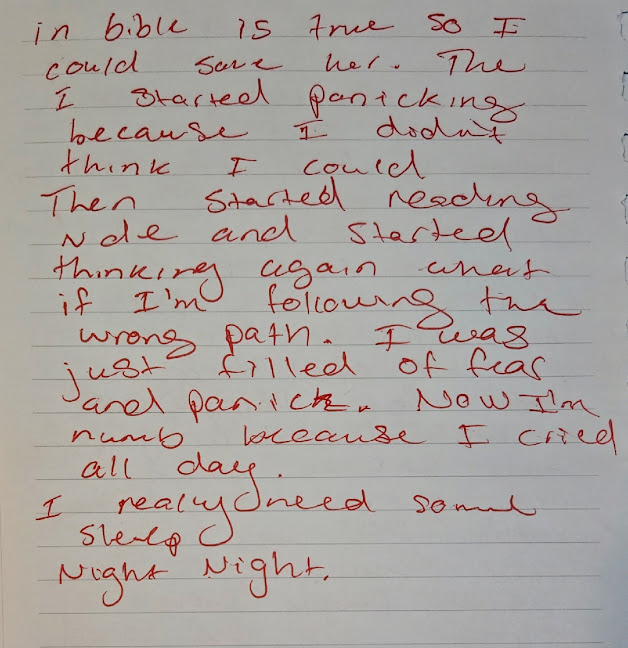 in bible is true so I
could save her. The
I started panicking
because I dodn't
think I could
Then started reading
NDE and started
thinking again what
if I'm following the
wrong path. I was
just filled of fear
and panick. Now I'm
numb because I cried
all day.
I really need some
sleep
Night Night.